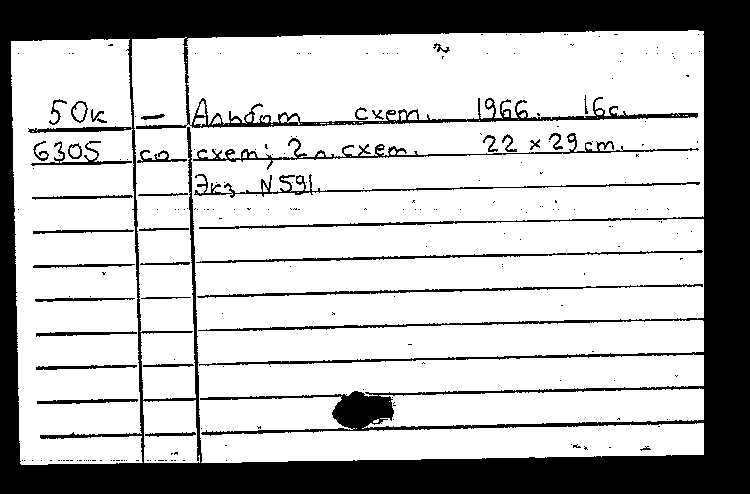 50к — Альбом схем. 1966. 16с.
6305 сп схем; 2 л. схем. 22 × 29 cm.
Экз. N 591.